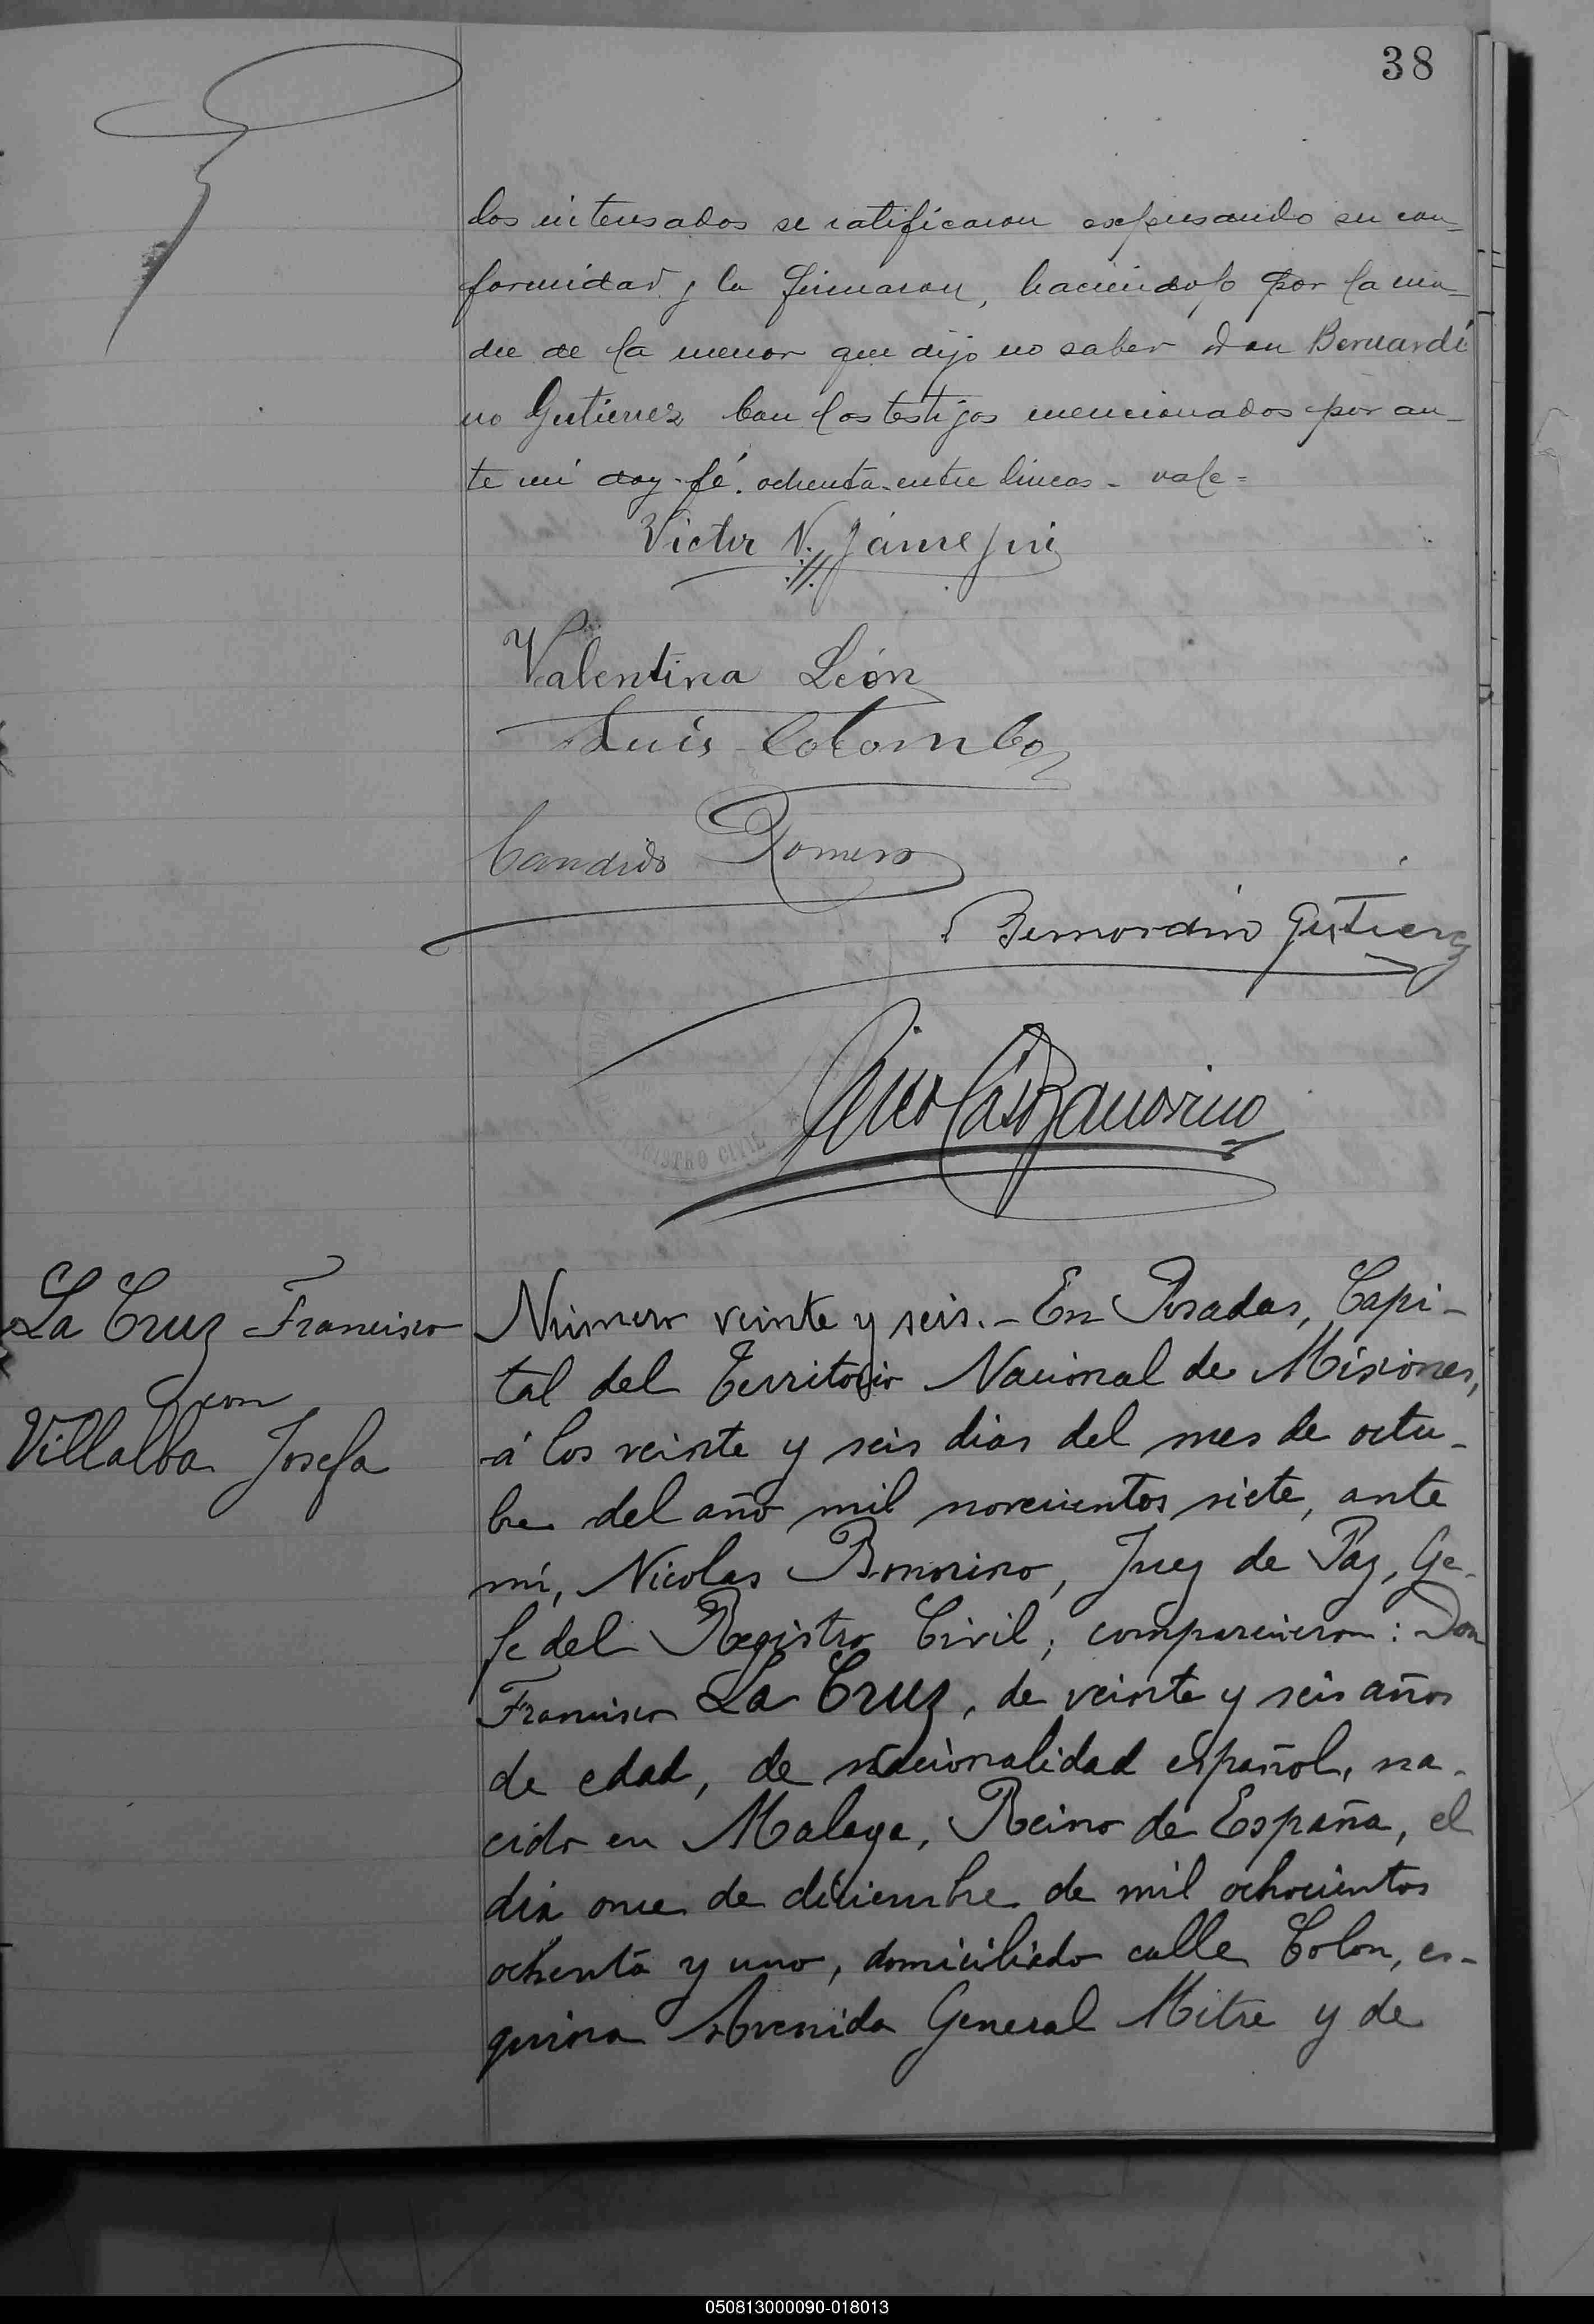 38
los interesados se ratificaron expresando su con-
formidad y la firmaron, haciendolo por la ma-
dre de la menor que dijo no saber Don Bernardi
no Gutierrez Con los testigos mencionados por an-
te mi doy fé. ochenta entre lineas - vale =
Victor N.
Valentina León
Luis Colombo
Candido Romero
Bernordin Gutierrez
Nicolás Bonorino
REGISTRO CIVIL
La Cruz Francisco
con
Villalba Josefa
Número veinte y seis. - En Posadas, Capi-
tal del Territorio Nacional de Misiones,
á los veinte y seis dias del mes de octu-
bre del año mil novecientos siete, ante
mí, Nicolas Bonorino, Juez de Paz, Ge-
fe del Registro Civil; comparecieron: Don
Francisco La Cruz, de veinte y seis años
de edad, de nacionalidad español, na-
cido en Malaga, Reino de España, el
dia once de diciembre de mil ochocientos
ochenta y uno, domiciliado calle Colon, es-
quina Avenida General Mitre y de
050813000090-018013